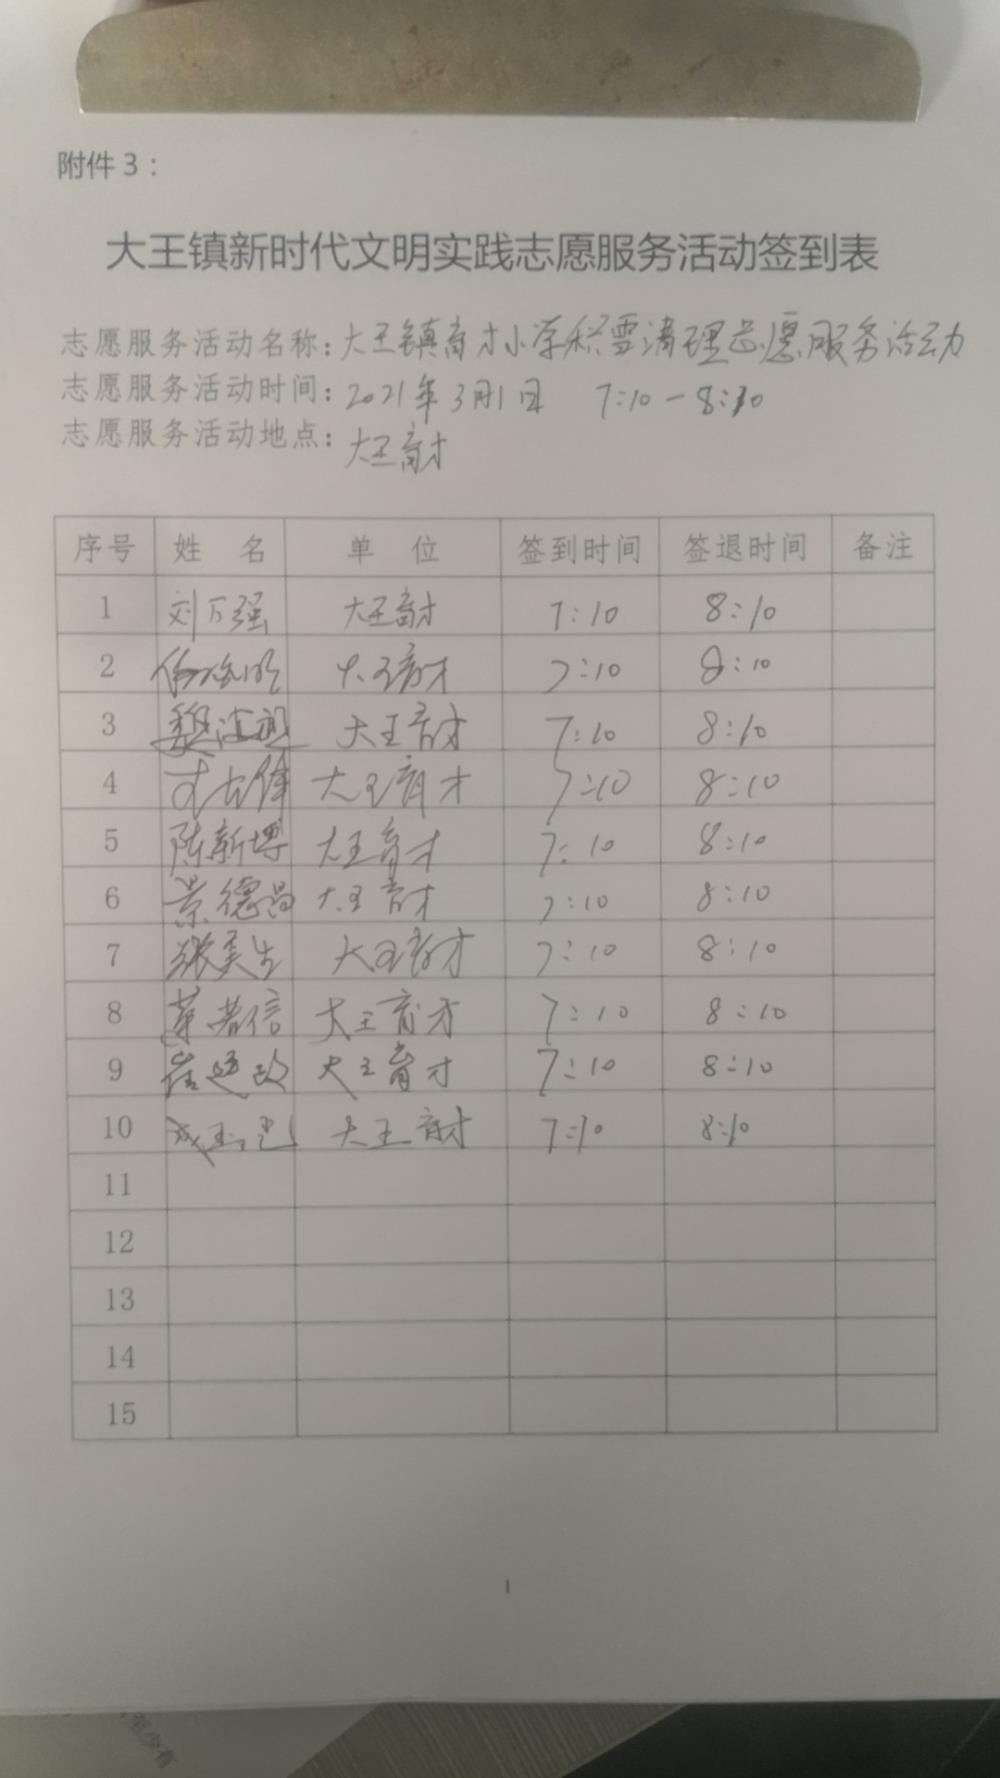 附件3：
大王镇新时代文明实践志愿服务活动签到表
志愿服务活动名称：大王镇育才小学积雪清理志愿服务活动
志愿服务活动时间：2021年3月1日 7:10-8:10
志愿服务活动地点：大王育才
序号 姓 名 单 位 签到时间 签退时间 备注
1 刘万强 大王育才 7:10 8:10
2 大王育才 7:10 8:10
3 大王育才 7:10 8:10
4 大王育才 7:10 8:10
5 陈新博 大王育才 7:10 8:10
6 景德昌 大王育才 7:10 8:10
7 张奚生 大王育才 7:10 8:10
8 大王育才 7:10 8:10
9 崔廷政 大王育才 7:10 8:10
10 大王育才 7:10 8:10
11
12
13
14
15
1